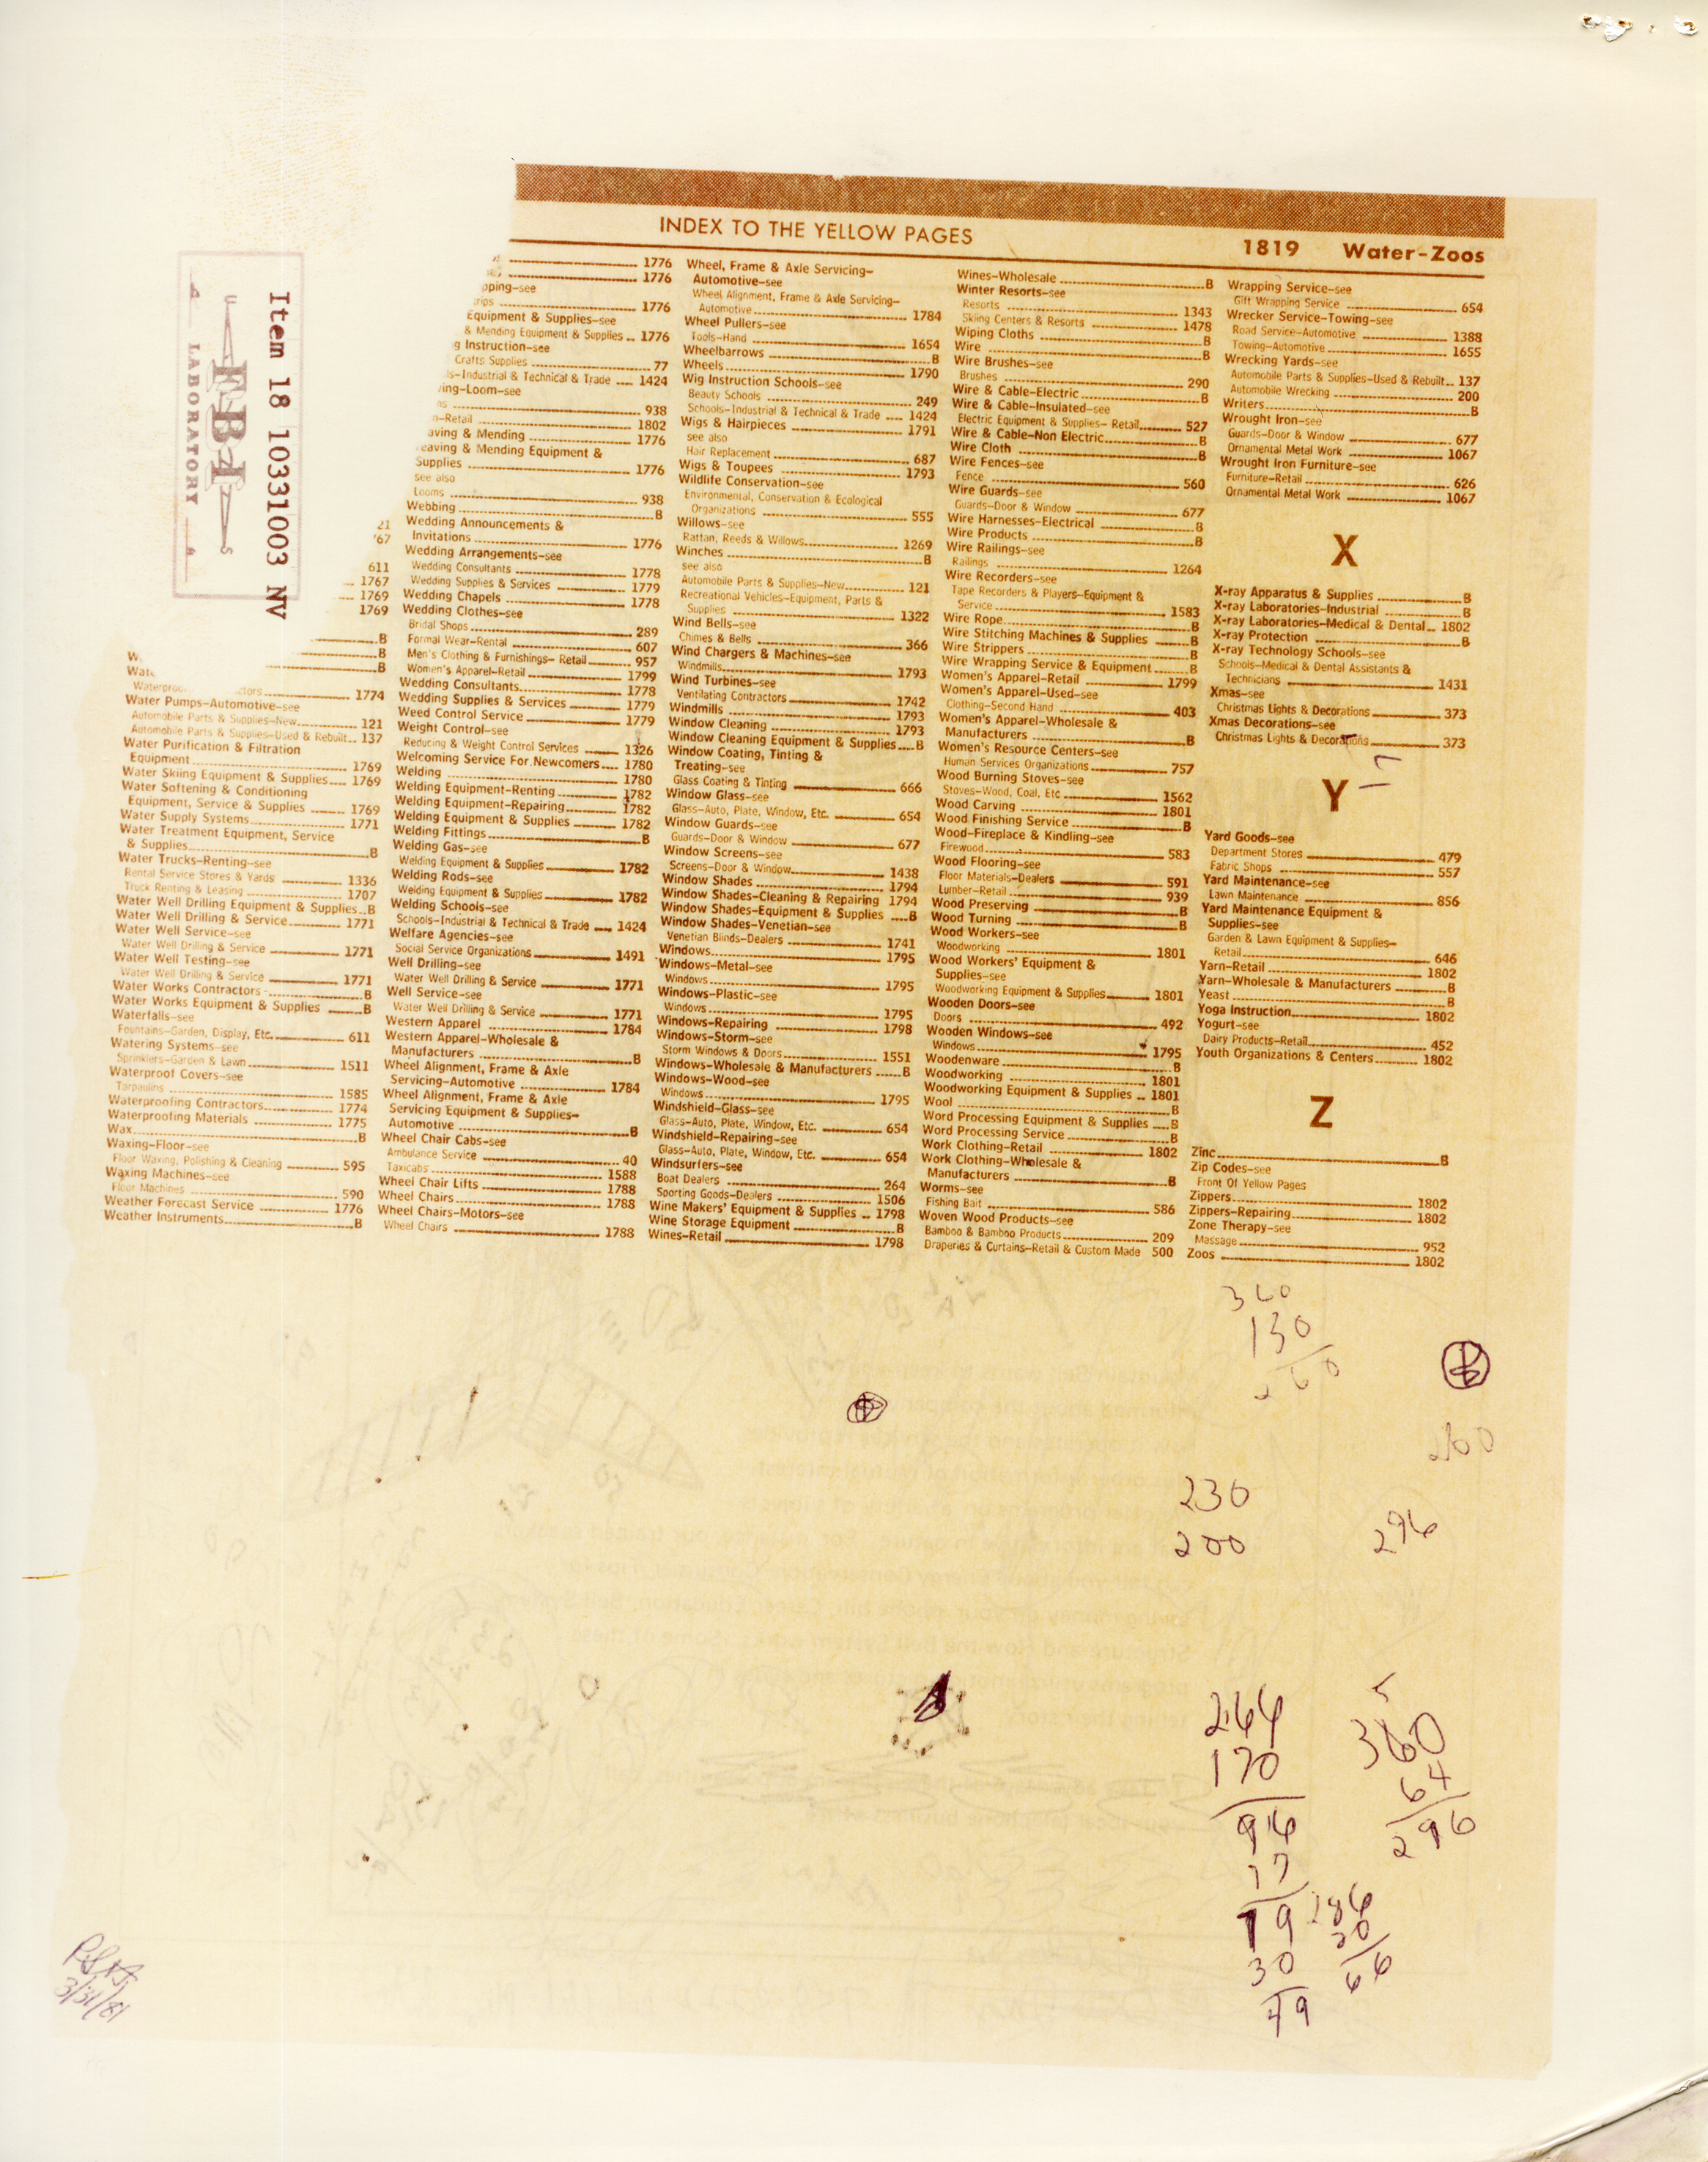 INDEX TO THE YELLOW PAGES
1819 Water–Zoos
Item 18 10331003 NV
FBI
LABORATORY
1776
1776
pping–see
1776
Equipment & Supplies–see
& Mending Equipment & Supplies 1776
g Instruction–see
Crafts Supplies 77
ls–Industrial & Technical & Trade 1424
ving–Loom–see
938
n–Retail 1802
aving & Mending 1776
eaving & Mending Equipment &
Supplies 1776
see also
Looms 938
Webbing B
Wedding Announcements &
Invitations 1776
Wedding Arrangements–see
Wedding Consultants 1778
Wedding Supplies & Services 1779
Wedding Chapels 1778
Wedding Clothes–see
Bridal Shops 289
Formal Wear–Rental 607
Men's Clothing & Furnishings– Retail 957
Women's Apparel–Retail 1799
Wedding Consultants 1778
Wedding Supplies & Services 1779
Weed Control Service 1779
Weight Control–see
Reducing & Weight Control Services 1326
Welcoming Service For Newcomers 1780
Welding 1780
Welding Equipment–Renting 1782
Welding Equipment–Repairing 1782
Welding Equipment & Supplies 1782
Welding Fittings B
Welding Gas–see
Welding Equipment & Supplies 1782
Welding Rods–see
Welding Equipment & Supplies 1782
Welding Schools–see
Schools–Industrial & Technical & Trade 1424
Welfare Agencies–see
Social Service Organizations 1491
Well Drilling–see
Water Well Drilling & Service 1771
Well Service–see
Water Well Drilling & Service 1771
Western Apparel 1784
Western Apparel–Wholesale &
Manufacturers B
Wheel Alignment, Frame & Axle
Servicing–Automotive 1784
Wheel Alignment, Frame & Axle
Servicing Equipment & Supplies–
Automotive B
Wheel Chair Cabs–see
Ambulance Service 40
Taxicabs 1588
Wheel Chair Lifts 1788
Wheel Chairs 1788
Wheel Chairs–Motors–see
Wheel Chairs 1788
21
767
611
1767
1769
1769
B
B
B
1774
Water Pumps–Automotive–see
Automobile Parts & Supplies–New 121
Automobile Parts & Supplies–Used & Rebuilt 137
Water Purification & Filtration
Equipment 1769
Water Skiing Equipment & Supplies 1769
Water Softening & Conditioning
Equipment, Service & Supplies 1769
Water Supply Systems 1771
Water Treatment Equipment, Service
& Supplies B
Water Trucks–Renting–see
Rental Service Stores & Yards 1336
Truck Renting & Leasing 1707
Water Well Drilling Equipment & Supplies B
Water Well Drilling & Service 1771
Water Well Service–see
Water Well Drilling & Service 1771
Water Well Testing–see
Water Well Drilling & Service 1771
Water Works Contractors B
Water Works Equipment & Supplies B
Waterfalls–see
Fountains–Garden, Display, Etc. 611
Watering Systems–see
Sprinklers–Garden & Lawn 1511
Waterproof Covers–see
Tarpaulins 1585
Waterproofing Contractors 1774
Waterproofing Materials 1775
Wax B
Waxing–Floor–see
Floor Waxing, Polishing & Cleaning 595
Waxing Machines–see
Floor Machines 590
Weather Forecast Service 1776
Weather Instruments B
Wheel, Frame & Axle Servicing–
Automotive–see
Wheel Alignment, Frame & Axle Servicing–
Automotive 1784
Wheel Pullers–see
Tools–Hand 1654
Wheelbarrows B
Wheels 1790
Wig Instruction Schools–see
Beauty Schools 249
Schools–Industrial & Technical & Trade 1424
Wigs & Hairpieces 1791
see also
Hair Replacement 687
Wigs & Toupees 1793
Wildlife Conservation–see
Environmental, Conservation & Ecological
Organizations 555
Willows–see
Rattan, Reeds & Willows 1269
Winches B
see also
Automobile Parts & Supplies–New 121
Recreational Vehicles–Equipment, Parts &
Supplies 1322
Wind Bells–see
Chimes & Bells 366
Wind Chargers & Machines–see
Windmills 1793
Wind Turbines–see
Ventilating Contractors 1742
Windmills 1793
Window Cleaning 1793
Window Cleaning Equipment & Supplies B
Window Coating, Tinting &
Treating–see
Glass Coating & Tinting 666
Window Glass–see
Glass–Auto, Plate, Window, Etc. 654
Window Guards–see
Guards–Door & Window 677
Window Screens–see
Screens–Door & Window 1438
Window Shades 1794
Window Shades–Cleaning & Repairing 1794
Window Shades–Equipment & Supplies B
Window Shades–Venetian–see
Venetian Blinds–Dealers 1741
Windows 1795
Windows–Metal–see
Windows 1795
Windows–Plastic–see
Windows 1795
Windows–Repairing 1798
Windows–Storm–see
Storm Windows & Doors 1551
Windows–Wholesale & Manufacturers B
Windows–Wood–see
Windows 1795
Windshield–Glass–see
Glass–Auto, Plate, Window, Etc. 654
Windshield–Repairing–see
Glass–Auto, Plate, Window, Etc. 654
Windsurfers–see
Boat Dealers 264
Sporting Goods–Dealers 1506
Wine Makers' Equipment & Supplies 1798
Wine Storage Equipment B
Wines–Retail 1798
Wines–Wholesale B
Winter Resorts–see
Resorts 1343
Skiing Centers & Resorts 1478
Wiping Cloths B
Wire B
Wire Brushes–see
Brushes 290
Wire & Cable–Electric B
Wire & Cable–Insulated–see
Electric Equipment & Supplies– Retail 527
Wire & Cable–Non Electric B
Wire Cloth B
Wire Fences–see
Fence 560
Wire Guards–see
Guards–Door & Window 677
Wire Harnesses–Electrical B
Wire Products B
Wire Railings–see
Railings 1264
Wire Recorders–see
Tape Recorders & Players–Equipment &
Service 1583
Wire Rope B
Wire Stitching Machines & Supplies B
Wire Strippers B
Wire Wrapping Service & Equipment B
Women's Apparel–Retail 1799
Women's Apparel–Used–see
Clothing–Second Hand 403
Women's Apparel–Wholesale &
Manufacturers B
Women's Resource Centers–see
Human Services Organizations 757
Wood Burning Stoves–see
Stoves–Wood, Coal, Etc 1562
Wood Carving 1801
Wood Finishing Service B
Wood–Fireplace & Kindling–see
Firewood 583
Wood Flooring–see
Floor Materials–Dealers 591
Lumber–Retail 939
Wood Preserving B
Wood Turning B
Wood Workers–see
Woodworking 1801
Wood Workers' Equipment &
Supplies–see
Woodworking Equipment & Supplies 1801
Wooden Doors–see
Doors 492
Wooden Windows–see
Windows 1795
Woodenware B
Woodworking 1801
Woodworking Equipment & Supplies 1801
Wool B
Word Processing Equipment & Supplies B
Word Processing Service B
Work Clothing–Retail 1802
Work Clothing–Wholesale &
Manufacturers B
Worms–see
Fishing Bait 586
Woven Wood Products–see
Bamboo & Bamboo Products 209
Draperies & Curtains–Retail & Custom Made 500
Wrapping Service–see
Gift Wrapping Service 654
Wrecker Service–Towing–see
Road Service–Automotive 1388
Towing–Automotive 1655
Wrecking Yards–see
Automobile Parts & Supplies–Used & Rebuilt 137
Automobile Wrecking 200
Writers B
Wrought Iron–see
Guards–Door & Window 677
Ornamental Metal Work 1067
Wrought Iron Furniture–see
Furniture–Retail 626
Ornamental Metal Work 1067
X
X-ray Apparatus & Supplies B
X-ray Laboratories–Industrial B
X-ray Laboratories–Medical & Dental 1802
X-ray Protection B
X-ray Technology Schools–see
Schools–Medical & Dental Assistants &
Technicians 1431
Xmas–see
Christmas Lights & Decorations 373
Xmas Decorations–see
Christmas Lights & Decorations 373
Y
Yard Goods–see
Department Stores 479
Fabric Shops 557
Yard Maintenance–see
Lawn Maintenance 856
Yard Maintenance Equipment &
Supplies–see
Garden & Lawn Equipment & Supplies–
Retail 646
Yarn–Retail 1802
Yarn–Wholesale & Manufacturers B
Yeast B
Yoga Instruction 1802
Yogurt–see
Dairy Products–Retail 452
Youth Organizations & Centers 1802
Z
Zinc B
Zip Codes–see
Front Of Yellow Pages
Zippers 1802
Zippers–Repairing 1802
Zone Therapy–see
Massage 952
Zoos 1802
360
130
260
200
230
200
296
264
170
94
17
79
30
49
360
64
296
30
66
3/31/81